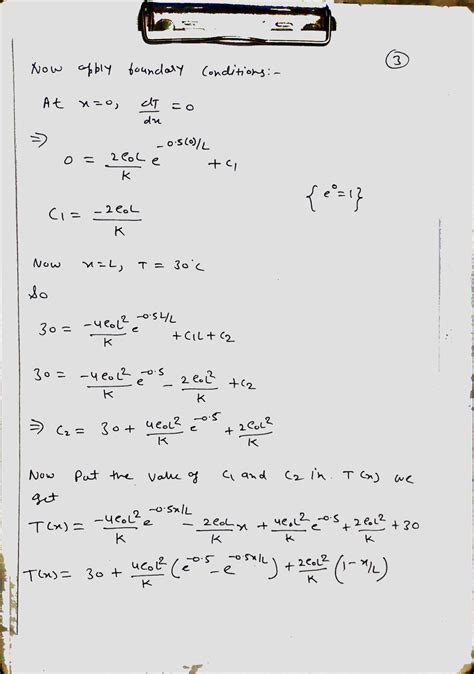 3
Now apply boundary Conditions:-
At x=0, dT/dx = 0
⇒ 0 = 2e₀L/K e^(-0.5(0)/L) + C₁
{e⁰=1}
C₁ = -2e₀L/K
Now x=L, T = 30°c
So
30 = -4e₀L²/K e^(-0.5L/L) + C₁L + C₂
30 = -4e₀L²/K e^(-0.5) - 2e₀L²/K + C₂
⇒ C₂ = 30 + 4e₀L²/K e^(-0.5) + 2e₀L²/K
Now Put the value of C₁ and C₂ in T(x) we
get
T(x) = -4e₀L²/K e^(-0.5x/L) - 2e₀L/K x + 4e₀L²/K e^(-0.5) + 2e₀L²/K + 30
T(x) = 30 + 4e₀L²/K (e^(-0.5) - e^(-0.5x/L)) + 2e₀L²/K (1 - x/L)